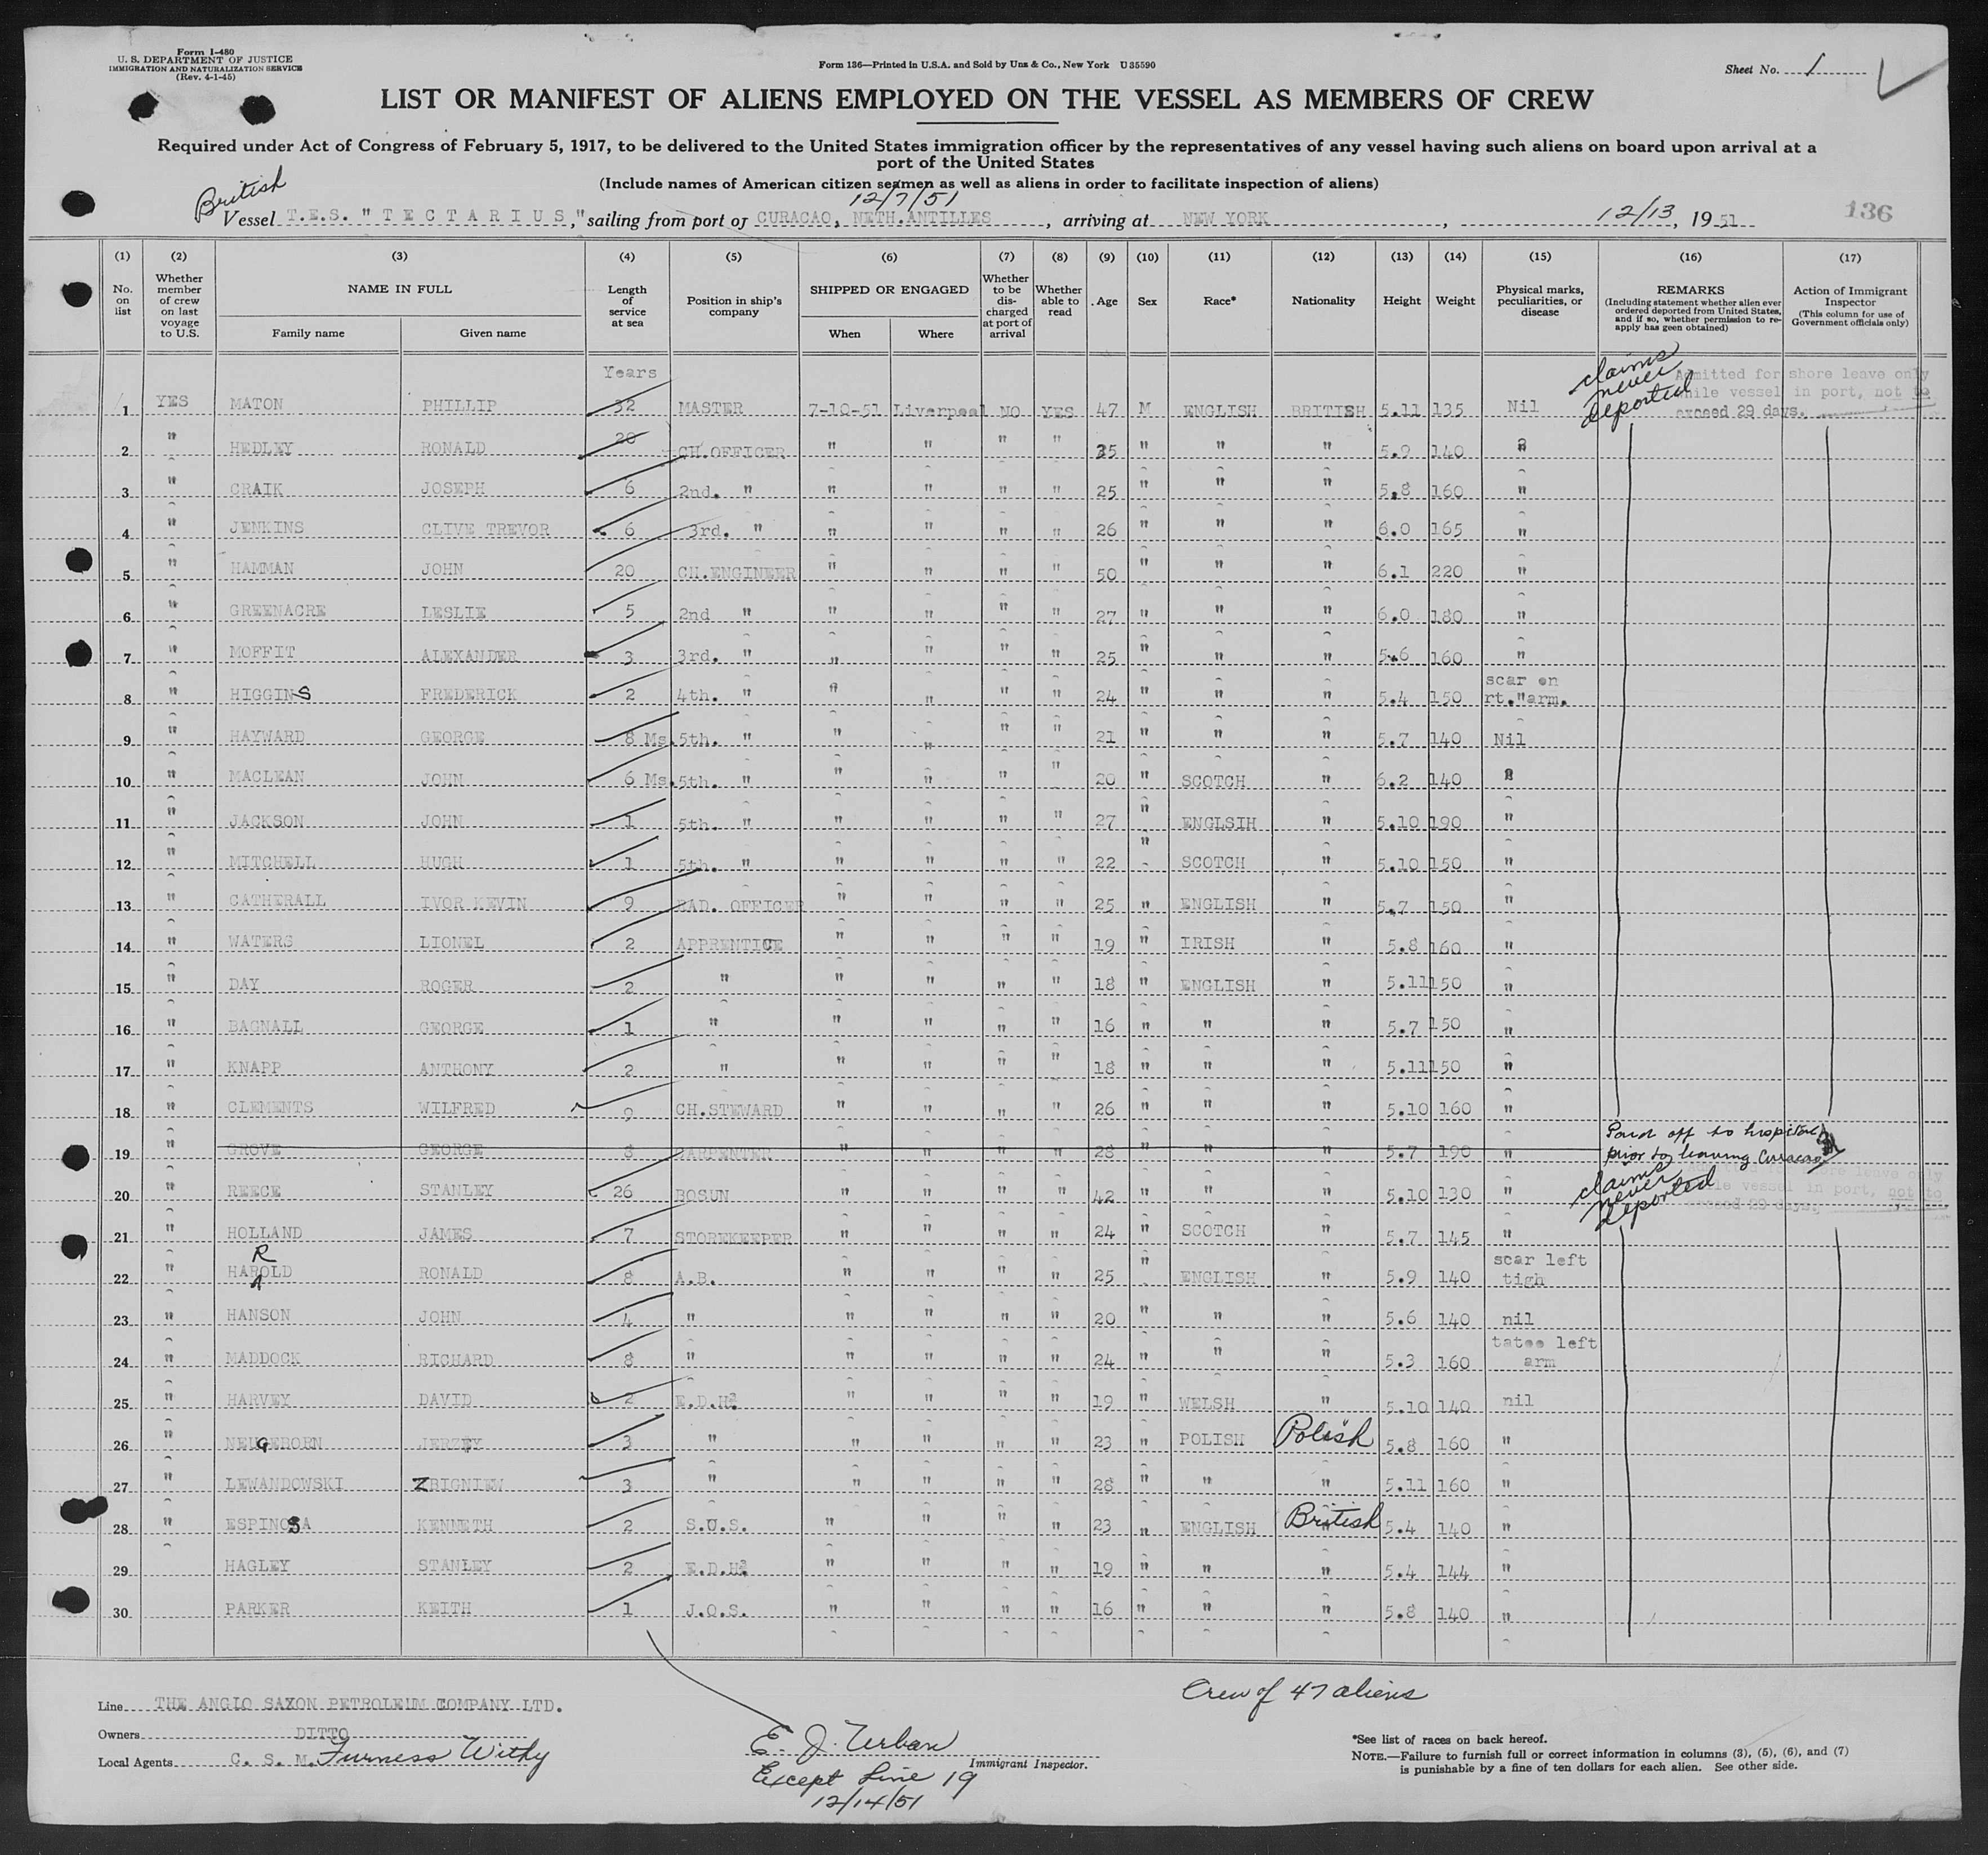 Form I-480
U. S. DEPARTMENT OF JUSTICE
IMMIGRATION AND NATURALIZATION SERVICE
(Rev. 4-1-45)
Form 136—Printed in U.S.A. and Sold by Unz & Co., New York U 35590
Sheet No. 1
LIST OR MANIFEST OF ALIENS EMPLOYED ON THE VESSEL AS MEMBERS OF CREW
Required under Act of Congress of February 5, 1917, to be delivered to the United States immigration officer by the representatives of any vessel having such aliens on board upon arrival at a
port of the United States
(Include names of American citizen seamen as well as aliens in order to facilitate inspection of aliens)
British 12/7/51
Vessel T.E.S. "TECTARIUS", sailing from port of CURACAO, NETH.ANTILLES, arriving at NEW YORK, 12/13, 1951 136
(1) (2) (3) (4) (5) (6) (7) (8) (9) (10) (11) (12) (13) (14) (15) (16) (17)
No. on list
Whether member of crew on last voyage to U.S.
NAME IN FULL
Family name Given name
Length of service at sea
Position in ship's company
SHIPPED OR ENGAGED
When Where
Whether to be discharged at port of arrival
Whether able to read
Age Sex Race* Nationality Height Weight
Physical marks, peculiarities, or disease
REMARKS
(Including statement whether alien ever ordered deported from United States, and if so, whether permission to re-apply has geen obtained)
Action of Immigrant Inspector
(This column for use of Government officials only)
Years
claims never deported
Admitted for shore leave only
while vessel in port, not to
exceed 29 days.
1 YES MATON PHILLIP 32 MASTER 7-10-51 Liverpool NO YES 47 M ENGLISH BRITISH 5.11 135 Nil
2 " HEDLEY RONALD 20 CH.OFFICER " " " " 35 " " " 5.9 140 "
3 " CRAIK JOSEPH 6 2nd. " " " " " 25 " " " 5.8 160 "
4 " JENKINS CLIVE TREVOR 6 3rd. " " " " " 26 " " " 6.0 165 "
5 " HAMMAN JOHN 20 CH.ENGINEER " " " " 50 " " " 6.1 220 "
6 " GREENACRE LESLIE 5 2nd " " " " " 27 " " " 6.0 180 "
7 " MOFFIT ALEXANDER 3 3rd. " " " " " 25 " " " 5.6 160 "
8 " HIGGINS FREDERICK 2 4th. " " " " " 24 " " " 5.4 150 scar on rt. "arm.
9 " HAYWARD GEORGE 8 Ms. 5th. " " " " " 21 " " " 5.7 140 Nil
10 " MACLEAN JOHN 6 Ms. 5th. " " " " " 20 " SCOTCH " 6.2 140 "
11 " JACKSON JOHN 1 5th. " " " " " 27 " ENGLSIH " 5.10 190 "
12 " MITCHELL HUGH 1 5th. " " " " " 22 " SCOTCH " 5.10 150 "
13 " CATHERALL IVOR KEVIN 9 RAD. OFFICER " " " " 25 " ENGLISH " 5.7 150 "
14 " WATERS LIONEL 2 APPRENTICE " " " " 19 " IRISH " 5.8 160 "
15 " DAY ROGER 2 " " " " " 18 " ENGLISH " 5.11 150 "
16 " BAGNALL GEORGE 1 " " " " " 16 " " " 5.7 150 "
17 " KNAPP ANTHONY 2 " " " " " 18 " " " 5.11 150 "
18 " CLEMENTS WILFRED 9 CH.STEWARD " " " " 26 " " " 5.10 160 "
19 " GROVE GEORGE 8 CARPENTER " " " " 28 " " " 5.7 190 " Paid off to hospital prior to leaving Curacao
20 " REECE STANLEY 26 BOSUN " " " " 42 " " " 5.10 130 " claims never deported
shore leave only
while vessel in port, not to
exceed 29 days.
21 " HOLLAND JAMES 7 STOREKEEPER " " " " 24 " SCOTCH " 5.7 145 "
R
22 " HAROLD RONALD 8 A.B. " " " " 25 " ENGLISH " 5.9 140 scar left tigh
23 " HANSON JOHN 4 " " " " " 20 " " " 5.6 140 nil
24 " MADDOCK RICHARD 8 " " " " " 24 " " " 5.3 160 tatoo left arm
25 " HARVEY DAVID 2 E.D.H. " " " " 19 " WELSH " 5.10 140 nil
26 " NEUGEBORN JERZEY 3 " " " " " 23 " POLISH Polish 5.8 160 "
27 " LEWANDOWSKI ZBIGNIEW 3 " " " " " 28 " " " 5.11 160 "
28 " ESPINOSA KENNETH 2 S.O.S. " " " " 23 " ENGLISH British 5.4 140 "
29 HAGLEY STANLEY 2 E.D.H. " " " " 19 " " " 5.4 144 "
30 PARKER KEITH 1 J.O.S. " " " " 16 " " " 5.8 140 "
Crew of 47 aliens
Line THE ANGLO SAXON PETROLEUM COMPANY LTD.
Owners DITTO
Local Agents C. S. M. Furness Withy
E. J. Urban
Immigrant Inspector.
Except Line 19
12/14/51
*See list of races on back hereof.
NOTE.—Failure to furnish full or correct information in columns (3), (5), (6), and (7)
is punishable by a fine of ten dollars for each alien. See other side.